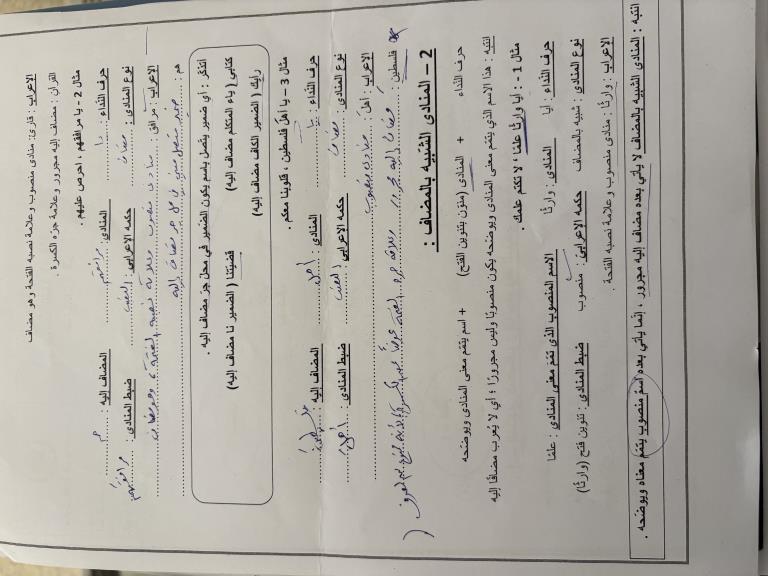 الإعراب : قارئ: منادى منصوب وعلامة نصبه الفتحة وهو مضاف
القرآن : مضاف إليه مجرور وعلامة جره الكسرة .
مثال 2 - يا مرافقهم ، احرص عليهم .
حرف النداء : يا المنادى : مرافقهم المضاف إليه : هم
نوع المنادى : مضاف حكمه الإعرابي : النصب ضبط المنادى :
الإعراب : مرافق : منادى منصوب وعلامة نصبه الفتحة وهو مضاف
هم : ضمير متصل مبني في محل جر مضاف إليه
أتذكر : أي ضمير يتصل باسم يكون الضمير في محل جر مضاف إليه .
كتابي ( ياء المتكلم مضاف إليه) قضيتنا ( الضمير نا مضاف إليه)
رأيك ( الضمير الكاف مضاف إليه)
مثال 3 – يا أهل فلسطين ، قلوبنا معكم .
حرف النداء : يا المنادى : أهل المضاف إليه : فلسطين
نوع المنادى : مضاف حكمه الإعرابي : النصب ضبط المنادى : أهلَ
الإعراب : أهل : منادى منصوب
فلسطين : مضاف إليه مجرور وعلامة جره الفتحة عوضاً عن الكسرة لأنه ممنوع من الصرف
2 – المنادى الشبيه بالمضاف :
حرف النداء + المنادى (منون بتنوين الفتح) + اسم يتمم معنى المنادى ويوضحه
انتبه : هذا الاسم الذي يتمم معنى المنادى ويوضحه يكون منصوبًا وليس مجرورًا ؛ أي لا يُعرب مضافًا إليه
مثال 1 - : أيا وارثًا علمًا ، لا تكتم علمك .
حرف النداء : أيا المنادى : وارثًا الاسم المنصوب الذي تمّم معنى المنادى : علمًا
نوع المنادى : شبيه بالمضاف حكمه الإعرابي : منصوب ضبط المنادى : تنوين فتح (وارثًا)
الإعراب : وارثًا : منادى منصوب وعلامة نصبه الفتحة .
انتبه : المنادى الشبيه بالمضاف لا يأتي بعده مضاف إليه مجرور ، إنما يأتي بعده اسم منصوب يتمم معناه ويوضحه .